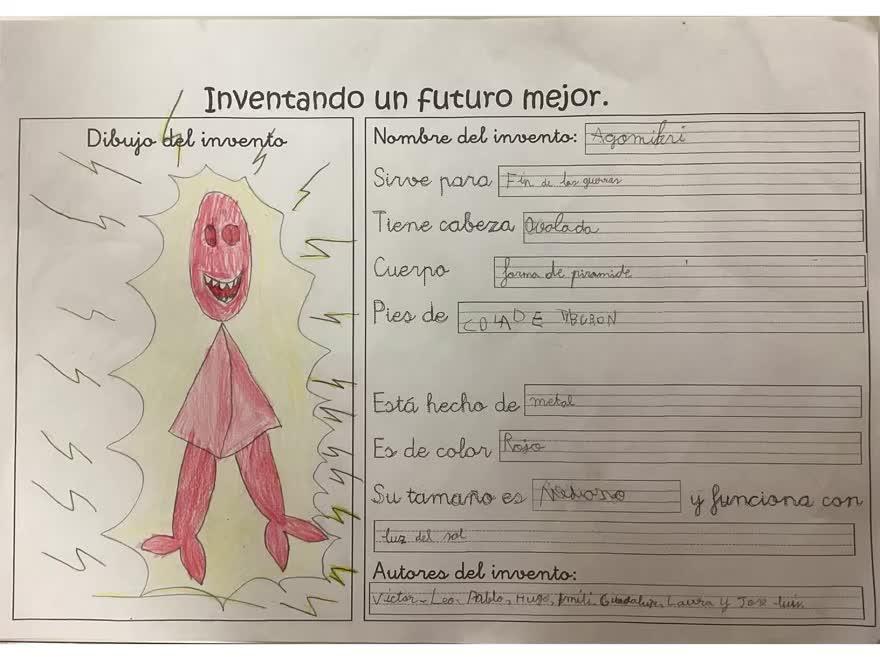 Inventando un futuro mejor.
Dibujo del invento
Nombre del invento: Agomikri
Sirve para Fin de las guerras
Tiene cabeza Ovalada
Cuerpo forma de piramide
Pies de COLA DE TIBURON
Está hecho de metal
Es de color Rojo
Su tamaño es y funciona con
luz del sol
Autores del invento:
Victor, Leo, Pablo, Hugo, Emili, Guadalupe, Laura y Jose luis.